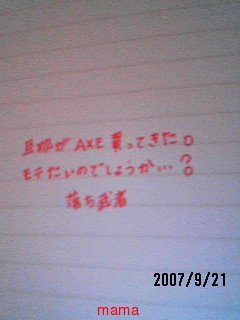 旦那がAXE買ってきた。
モテたいのでしょうか…?
落ち武者
2007/9/21
mama